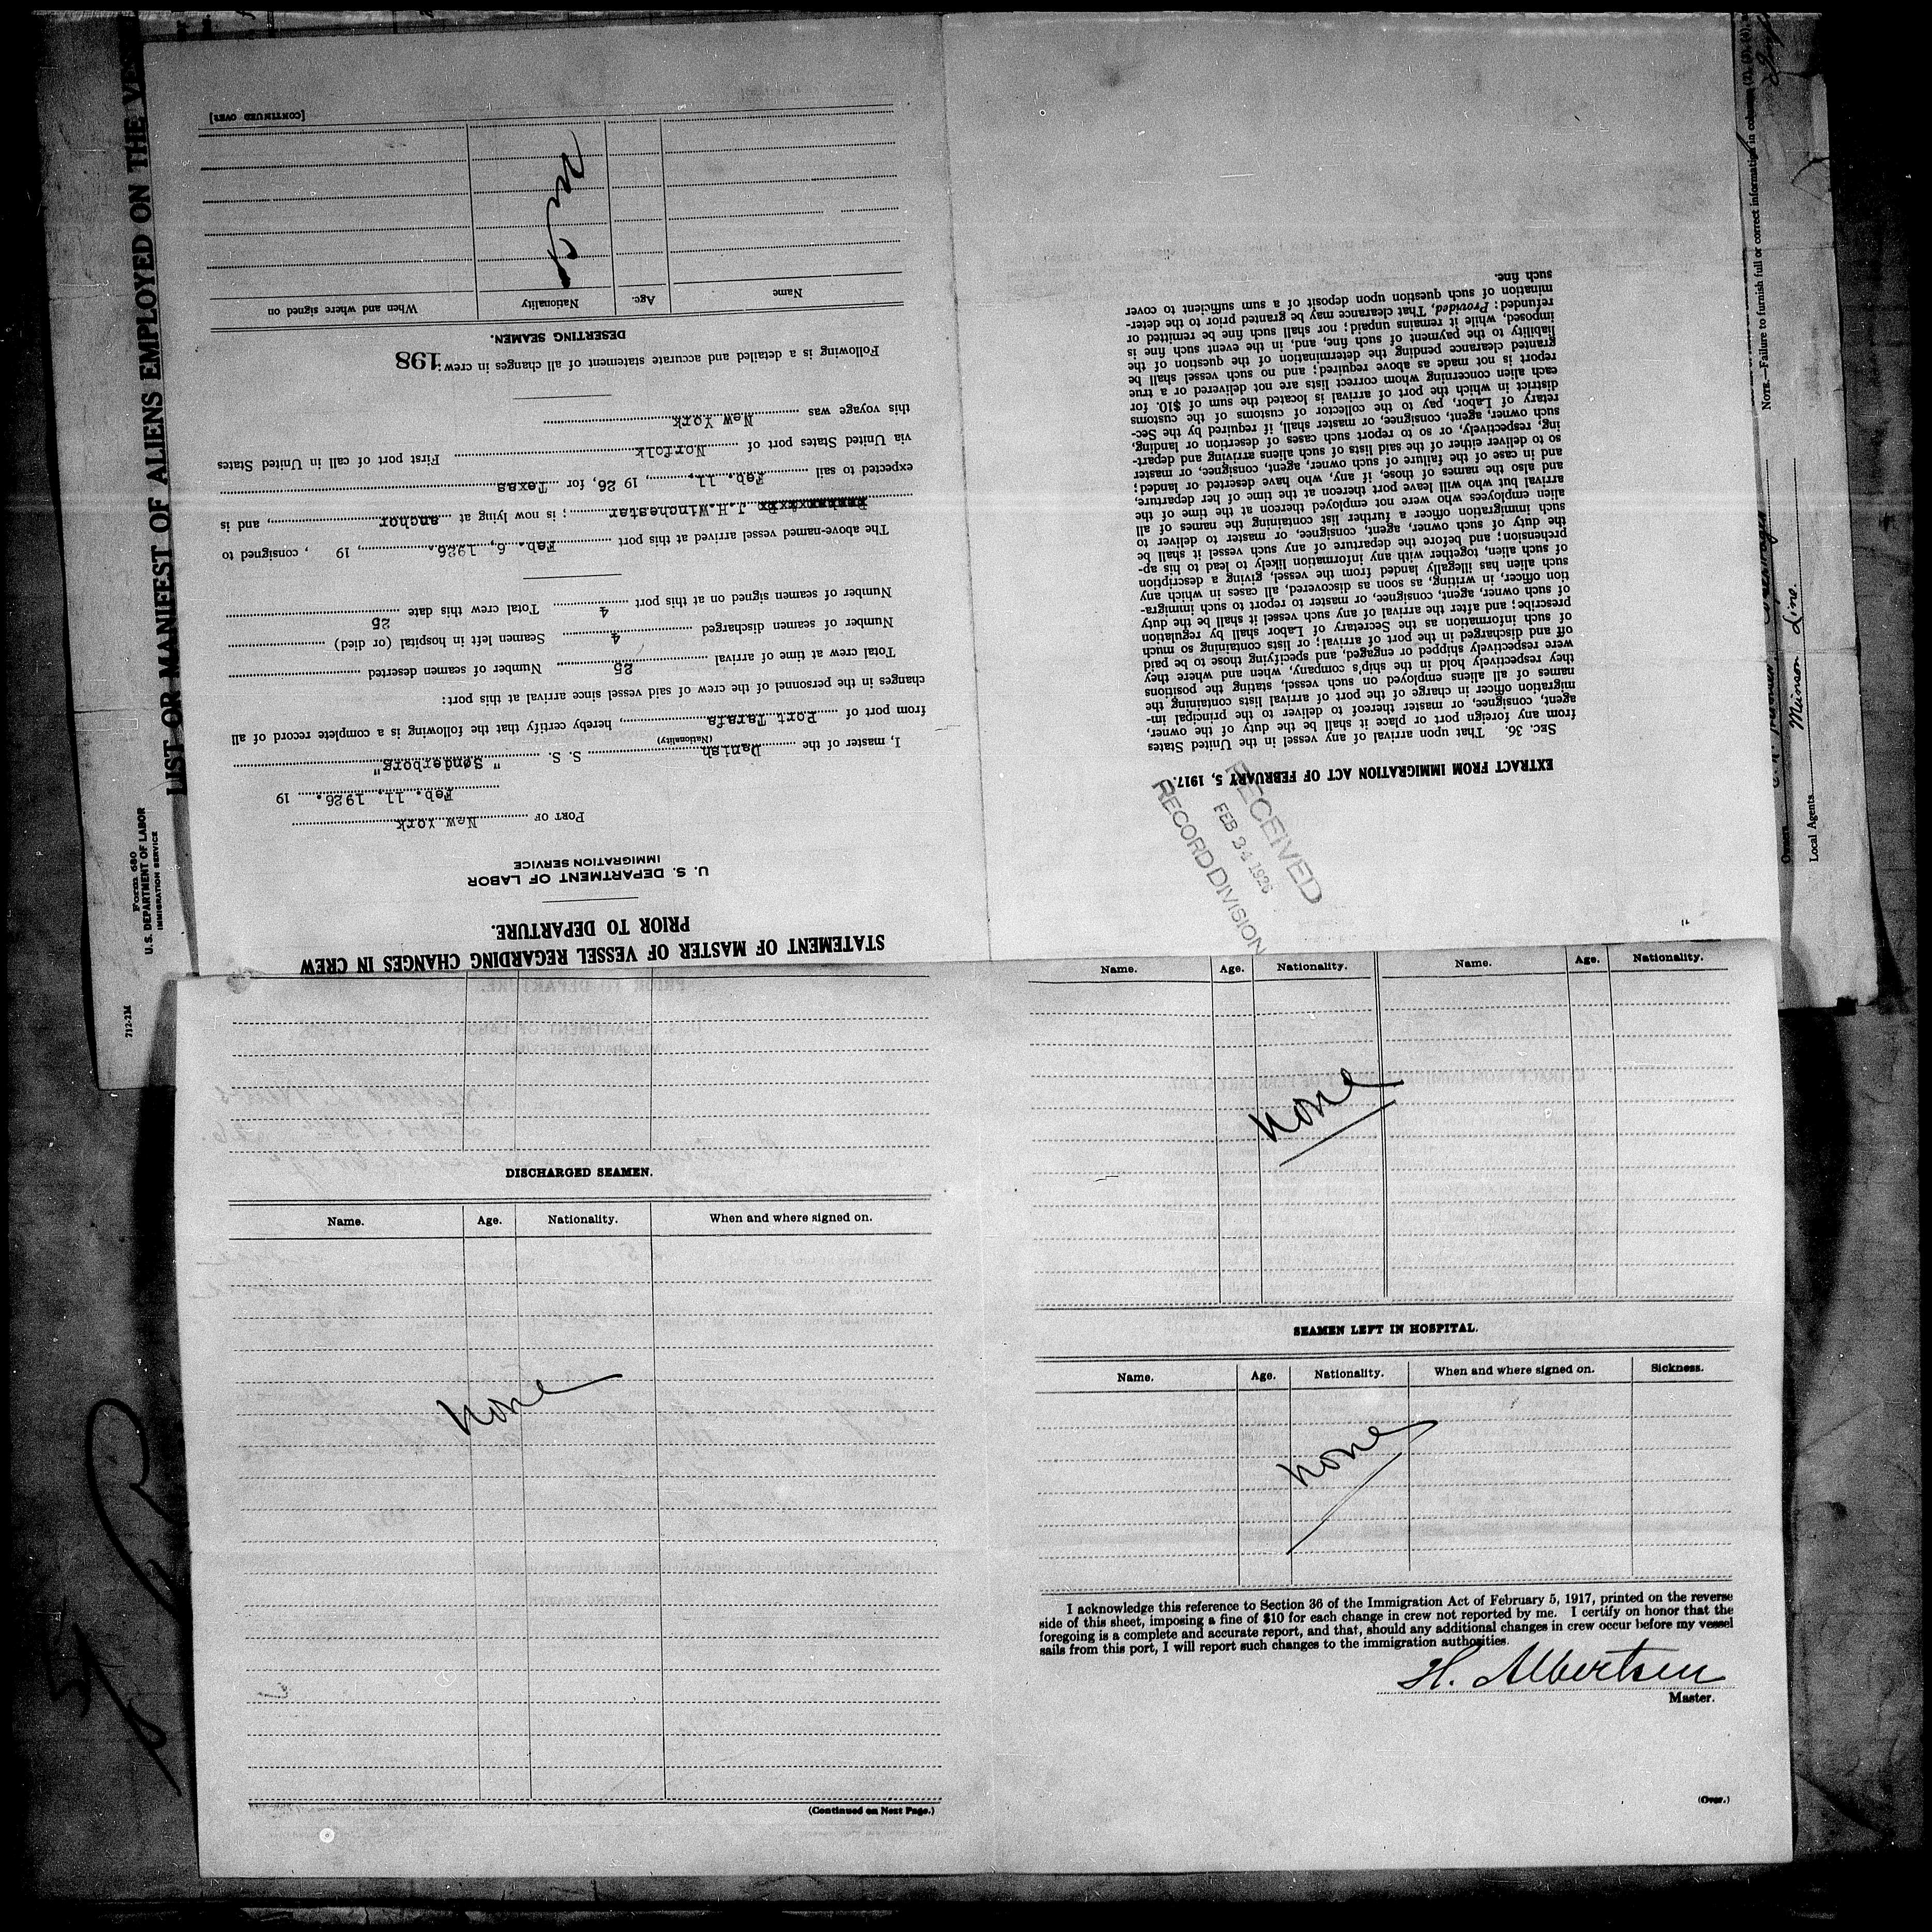 STATEMENT OF MASTER OF VESSEL REGARDING CHANGES IN CREW
PRIOR TO DEPARTURE.
U. S. DEPARTMENT OF LABOR
IMMIGRATION SERVICE
PORT OF New York
Feb. 11, 1926. 19
I, master of the Danish S. S. "Sonderborg"
(Nationality)
from port of Port Tarafa, hereby certify that the following is a complete record of all
changes in the personnel of the crew of said vessel since arrival at this port:
Total crew at time of arrival 25 Number of seamen deserted
Number of seamen discharged 4 Seamen left in hospital (or died)
Number of seamen signed on at this port 4 Total crew this date 25
The above-named vessel arrived at this port Feb. 6, 1926., 19 , consigned to
J.H.Winchester; is now lying at anchor, and is
expected to sail Feb. 11, 19 26, for Texas
via United States port of Norfolk First port of call in United States
this voyage was New York
Following is a detailed and accurate statement of all changes in crew: 198
DESERTING SEAMEN.
Name Age. Nationality When and where signed on
[CONTINUED OVER]
EXTRACT FROM IMMIGRATION ACT OF FEBRUARY 5, 1917.
SEC. 36. That upon arrival of any vessel in the United States
from any foreign port or place it shall be the duty of the owner,
agent, consignee, or master thereof to deliver to the principal im-
migration officer in charge of the port of arrival lists containing the
names of all aliens employed on such vessel, stating the positions
they respectively hold in the ship's company, when and where they
were respectively shipped or engaged, and specifying those to be paid
off and discharged in the port of arrival; or lists containing so much
of such information as the Secretary of Labor shall by regulation
prescribe; and after the arrival of any such vessel it shall be the duty
of such owner, agent, consignee, or master to report to such immigra-
tion officer, in writing, as soon as discovered, all cases in which any
such alien has illegally landed from the vessel, giving a description
of such alien, together with any information likely to lead to his ap-
prehension; and before the departure of any such vessel it shall be
the duty of such owner, agent, consignee, or master to deliver to
such immigration officer a further list containing the names of all
alien employees who were not employed thereon at the time of the
arrival but who will leave port thereon at the time of her departure,
and also the names of those, if any, who have deserted or landed;
and in case of the failure of such owner, agent, consignee, or master
so to deliver either of the said lists of such aliens arriving and depart-
ing, respectively, or so to report such cases of desertion or landing,
such owner, agent, consignee, or master shall, if required by the Sec-
retary of Labor, pay to the collector of customs of the customs
district in which the port of arrival is located the sum of $10. for
each alien concerning whom correct lists are not delivered or a true
report is not made as above required; and no such vessel shall be
granted clearance pending the determination of the question of the
liability to the payment of such fine, and, in the event such fine is
imposed, while it remains unpaid; nor shall such fine be remitted or
refunded: Provided, That clearance may be granted prior to the deter-
mination of such question upon deposit of a sum sufficient to cover
such fine.
RECEIVED
FEB 24 1926
RECORD DIVISION
LIST OR MANIFEST OF ALIENS EMPLOYED ON THE
Form 680
U. S. DEPARTMENT OF LABOR
IMMIGRATION SERVICE
712-2M
NOTE.—Failure to furnish full or correct information in
Owners
Local Agents Munson Line.
DISCHARGED SEAMEN.
Name. Age. Nationality. When and where signed on.
None
(Continued on Next Page.)
Name. Age. Nationality. Name. Age. Nationality.
None
SEAMEN LEFT IN HOSPITAL.
Name. Age. Nationality. When and where signed on. Sickness.
None
I acknowledge this reference to Section 36 of the Immigration Act of February 5, 1917, printed on the reverse
side of this sheet, imposing a fine of $10 for each change in crew not reported by me. I certify on honor that the
foregoing is a complete and accurate report, and that, should any additional changes in crew occur before my vessel
sails from this port, I will report such changes to the immigration authorities.
H. Albertsen
Master.
(Over.)